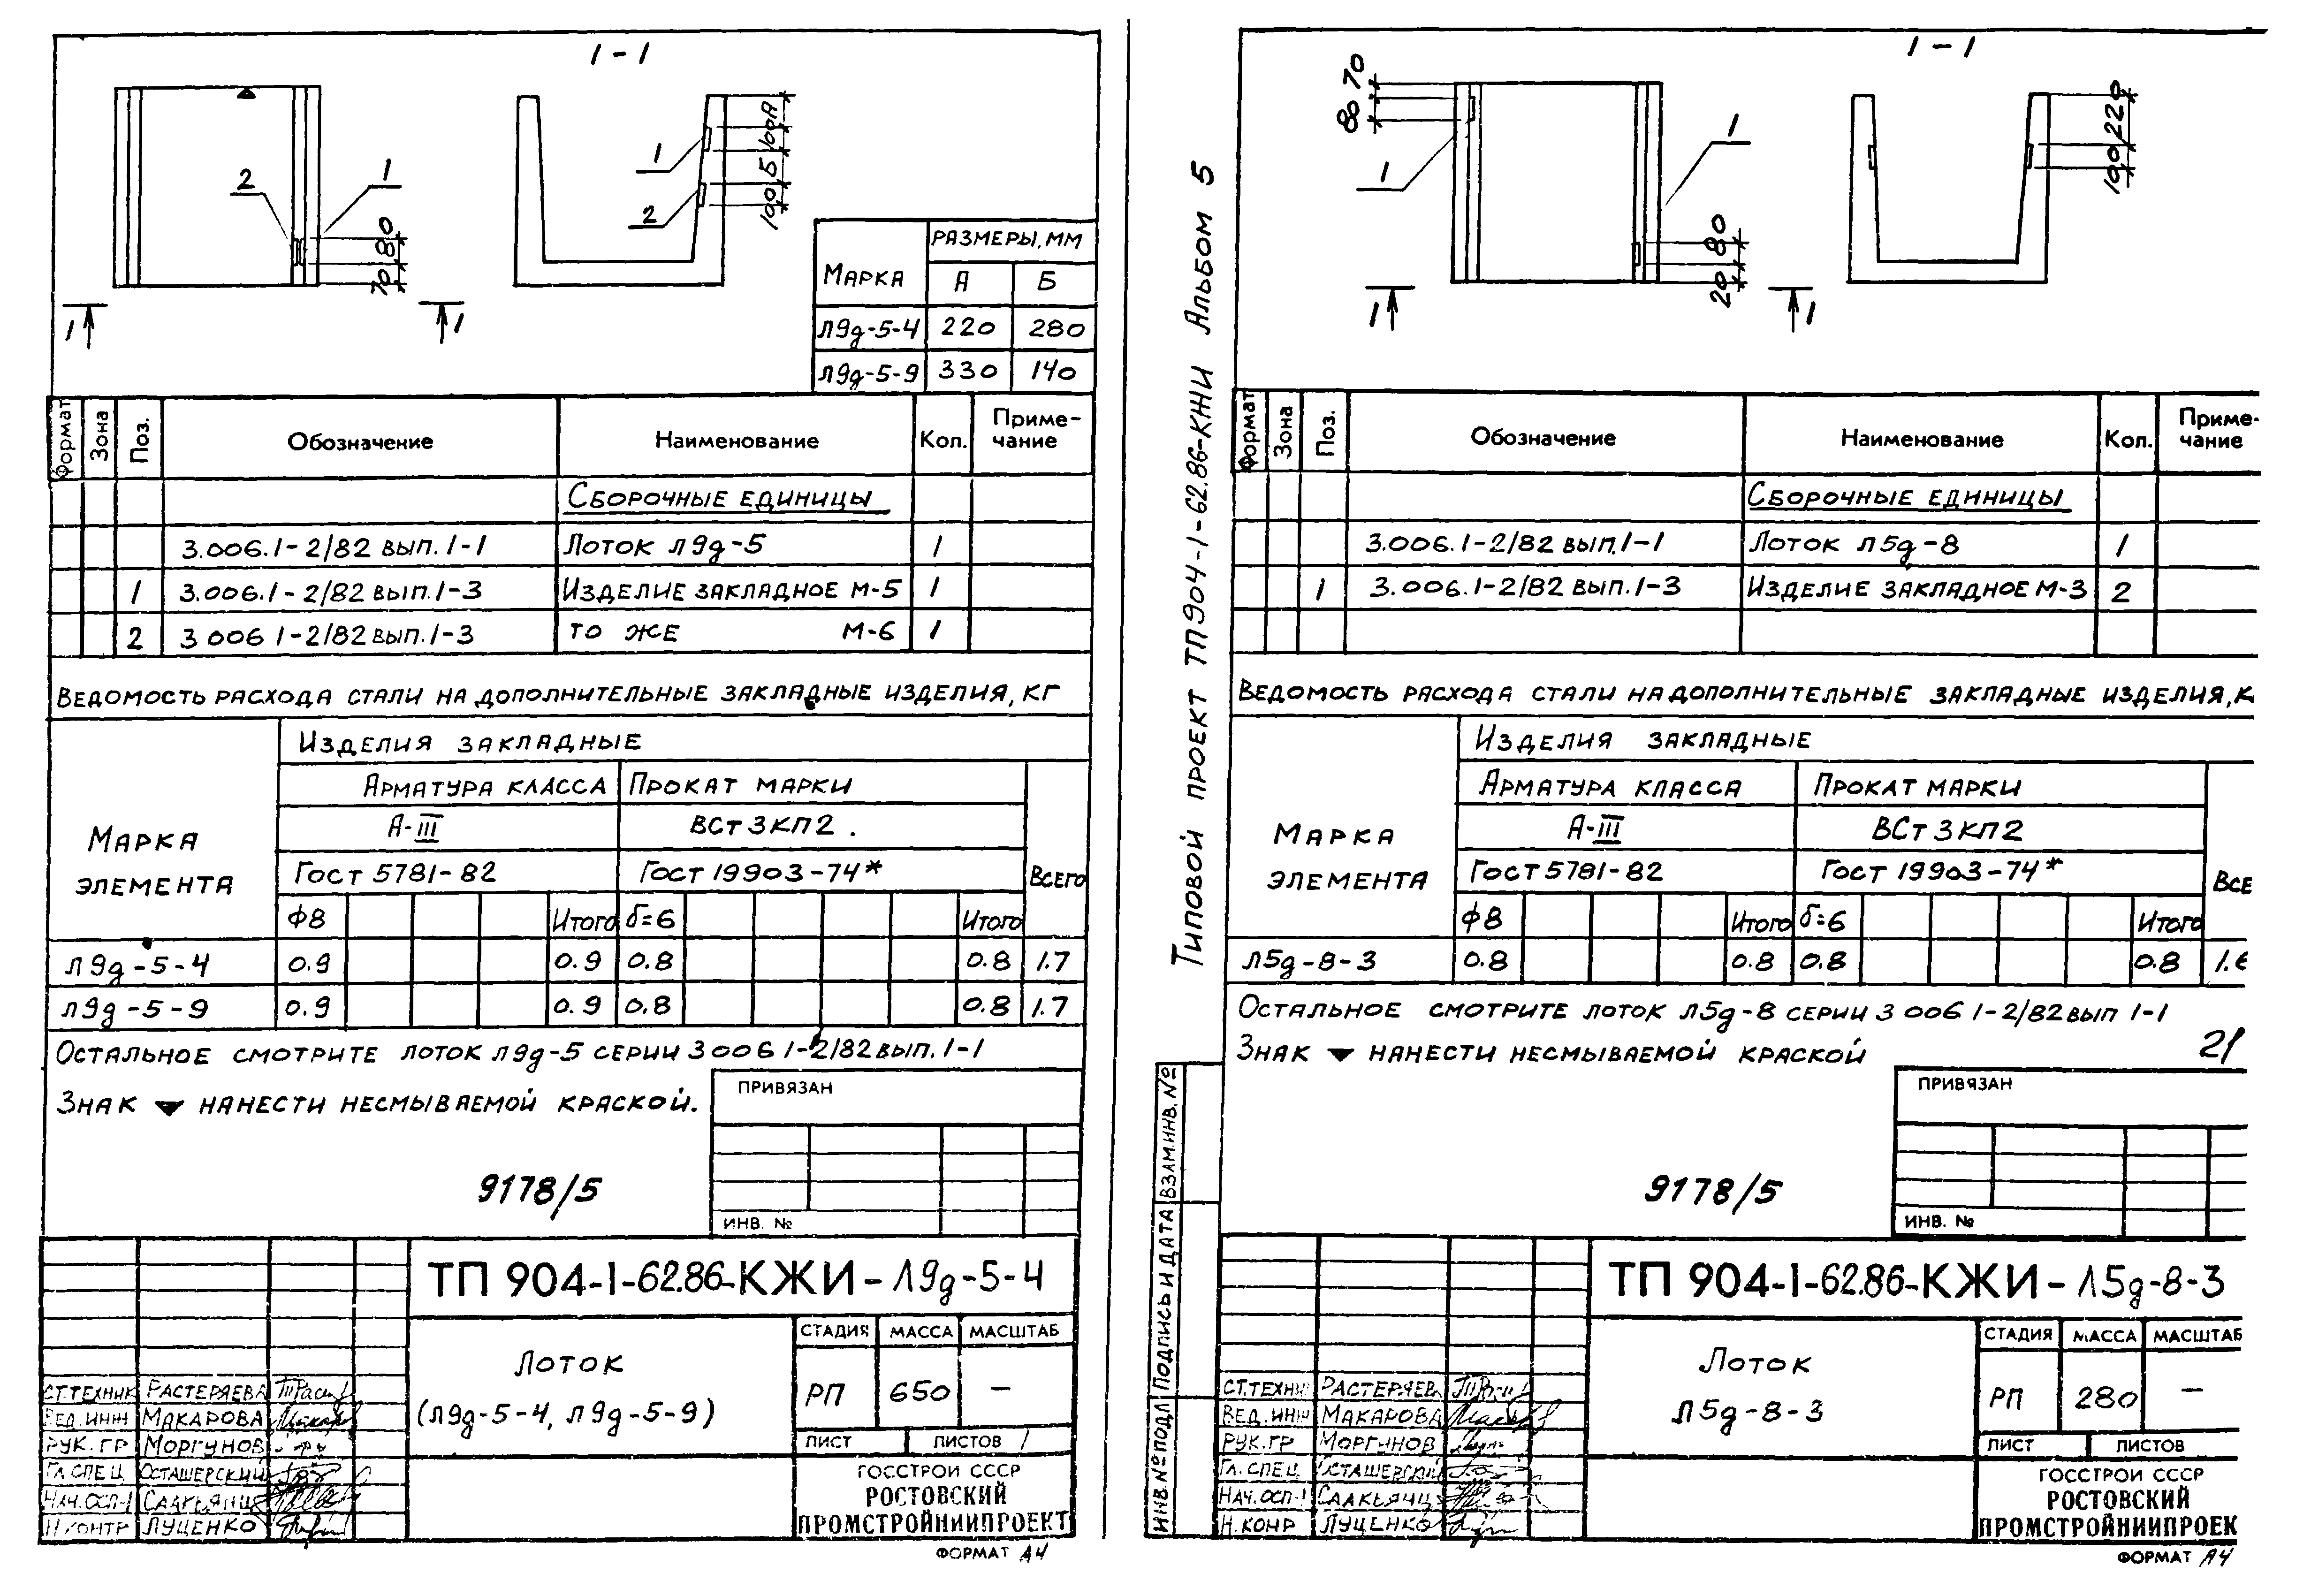 1-1
А
100
Б
100
1
2
2
1
80
70
1
1
МАРКА
РАЗМЕРЫ, ММ
А
Б
Л9д-5-4 220 280
Л9д-5-9 330 140
Формат Зона Поз. Обозначение Наименование Кол. Приме-
чание
СБОРОЧНЫЕ ЕДИНИЦЫ
3.006.1-2/82 вып. 1-1 ЛОТОК Л9д-5 1
1 3.006.1-2/82 вып. 1-3 ИЗДЕЛИЕ ЗАКЛАДНОЕ М-5 1
2 3 006 1-2/82 вып. 1-3 ТО ЖЕ М-6 1
ВЕДОМОСТЬ РАСХОДА СТАЛИ НА ДОПОЛНИТЕЛЬНЫЕ ЗАКЛАДНЫЕ ИЗДЕЛИЯ, КГ
МАРКА
ЭЛЕМЕНТА
ИЗДЕЛИЯ ЗАКЛАДНЫЕ
АРМАТУРА КЛАССА ПРОКАТ МАРКИ
А-III ВСт3КП2.
ГОСТ 5781-82 ГОСТ 19903-74*
ВСЕГО
Ф8 Итого б=6 Итого
Л9д-5-4 0.9 0.9 0.8 0.8 1.7
Л9д-5-9 0.9 0.9 0.8 0.8 1.7
ОСТАЛЬНОЕ СМОТРИТЕ ЛОТОК Л9д-5 СЕРИИ 3 006 1-2/82 вып. 1-1
ЗНАК ▼ НАНЕСТИ НЕСМЫВАЕМОЙ КРАСКОЙ.
ПРИВЯЗАН
ИНВ. №
9178/5
ТП 904-1-62.86-КЖИ-Л9д-5-4
ЛОТОК
(Л9д-5-4, Л9д-5-9)
СТАДИЯ МАССА МАСШТАБ
РП 650 –
ЛИСТ ЛИСТОВ 1
ГОССТРОЙ СССР
РОСТОВСКИЙ
ПРОМСТРОЙНИИПРОЕКТ
СТ.ТЕХНИК РАСТЕРЯЕВА
ВЕД.ИНЖ МАКАРОВА
РУК.ГР МОРГУНОВ
ГЛ.СПЕЦ ОСТАШЕВСКИЙ
НАЧ.ОСП-1 СААКЬЯНЦ
Н КОНТР ЛУЦЕНКО
ФОРМАТ А4
ТИПОВОЙ ПРОЕКТ ТП904-1-62.86-КЖИ АЛЬБОМ 5
1-1
70
80
1
1
80
20
1
1
220
100
Формат Зона Поз. Обозначение Наименование Кол. Приме-
чание
СБОРОЧНЫЕ ЕДИНИЦЫ
3.006.1-2/82 вып. 1-1 ЛОТОК Л5д-8 1
1 3.006.1-2/82 вып. 1-3 ИЗДЕЛИЕ ЗАКЛАДНОЕ М-3 2
ВЕДОМОСТЬ РАСХОДА СТАЛИ НА ДОПОЛНИТЕЛЬНЫЕ ЗАКЛАДНЫЕ ИЗДЕЛИЯ, К
МАРКА
ЭЛЕМЕНТА
ИЗДЕЛИЯ ЗАКЛАДНЫЕ
АРМАТУРА КЛАССА ПРОКАТ МАРКИ
А-III ВСт3КП2
ГОСТ 5781-82 ГОСТ 19903-74*
ВСЕ
Ф8 Итого б=6 Итого
Л5д-8-3 0.8 0.8 0.8 0.8 1.6
ОСТАЛЬНОЕ СМОТРИТЕ ЛОТОК Л5д-8 СЕРИИ 3 006 1-2/82 вып 1-1
ЗНАК ▼ НАНЕСТИ НЕСМЫВАЕМОЙ КРАСКОЙ
21
ПРИВЯЗАН
ИНВ. №
9178/5
ВЗАМ.ИНВ.№
ПОДПИСЬ И ДАТА
ИНВ.№ПОДЛ
ТП 904-1-62.86-КЖИ-Л5д-8-3
ЛОТОК
Л5д-8-3
СТАДИЯ МАССА МАСШТАБ
РП 280 –
ЛИСТ ЛИСТОВ
ГОССТРОЙ СССР
РОСТОВСКИЙ
ПРОМСТРОЙНИИПРОЕК
СТ.ТЕХНИ РАСТЕРЯЕВА
ВЕД.ИНЖ МАКАРОВА
РУК.ГР МОРГУНОВ
ГЛ.СПЕЦ ОСТАШЕВСКИЙ
НАЧ.ОСП-1 СААКЬЯНЦ
Н.КОНР ЛУЦЕНКО
ФОРМАТ А4